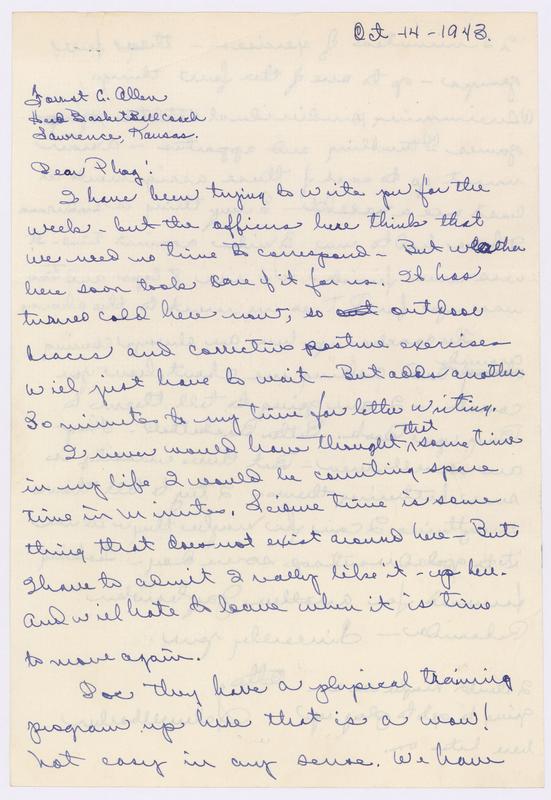 Oct-14-1943.
Forrest C. Allen
Head Basket Ball coach
Lawrence, Kansas.
Dear Phog!
I have been trying to write you for the
week - but the officers here thinks that
we need no time to correspond - But weather
here soon took care of it for us. It has
turned cold here now, so out outdoor
braces and corrective posture exercises
will just have to wait - But adds another
30 minutes to my time for letter writing.
I never would have thought that some time
in my life I would be counting spare
time in minutes. Leisure time is some
thing that does not exist around here - But
I have to admit I really like it - up here.
And will hate to leave when it is time
to move again.
Doc they have a physical training
program up here that is a wow!
Not easy in any sense. We have